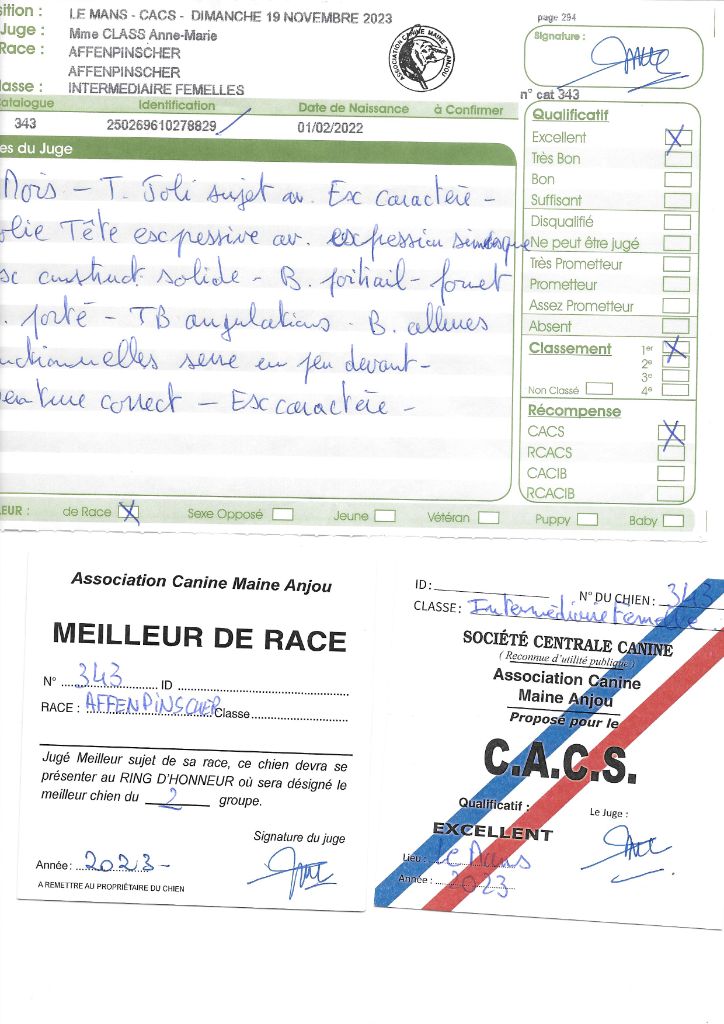 sition : LE MANS - CACS - DIMANCHE 19 NOVEMBRE 2023
Juge : Mme CLASS Anne-Marie
Race : AFFENPINSCHER
AFFENPINSCHER
lasse : INTERMEDIAIRE FEMELLES
page 294
Signature :
ASSOCIATION CANINE MAINE ANJOU
n° cat 343
atalogue Identification Date de Naissance à Confirmer
343 250269610278829 01/02/2022
es du Juge
Mois - T. Joli sujet av. Exc caractère -
olie Tête expressive av. expression simiesque
xc construct solide - B. poitrail - fouet
. porté - TB angulations . B. allures
nctionnelles serre un peu devant -
enture correct - Exc caractère -
Qualificatif
Excellent X
Très Bon
Bon
Suffisant
Disqualifié
Ne peut être jugé
Très Prometteur
Prometteur
Assez Prometteur
Absent
Classement 1er X
2e
3e
Non Classé 4e
Récompense
CACS X
RCACS
CACIB
RCACIB
LEUR : de Race X Sexe Opposé Jeune Vétéran Puppy Baby
Association Canine Maine Anjou
MEILLEUR DE RACE
N° 343 ID
RACE : AFFENPINSCHER Classe
Jugé Meilleur sujet de sa race, ce chien devra se
présenter au RING D'HONNEUR où sera désigné le
meilleur chien du 2 groupe.
Signature du juge
Année : 2023 -
A REMETTRE AU PROPRIÉTAIRE DU CHIEN
ID : N° DU CHIEN : 343
CLASSE : Intermédiaire Femelle
SOCIÉTÉ CENTRALE CANINE
( Reconnue d'utilité publique )
Association Canine
Maine Anjou
Proposé pour le
C.A.C.S.
Qualificatif : Le Juge :
EXCELLENT
Lieu : Le Mans
Année : 2023